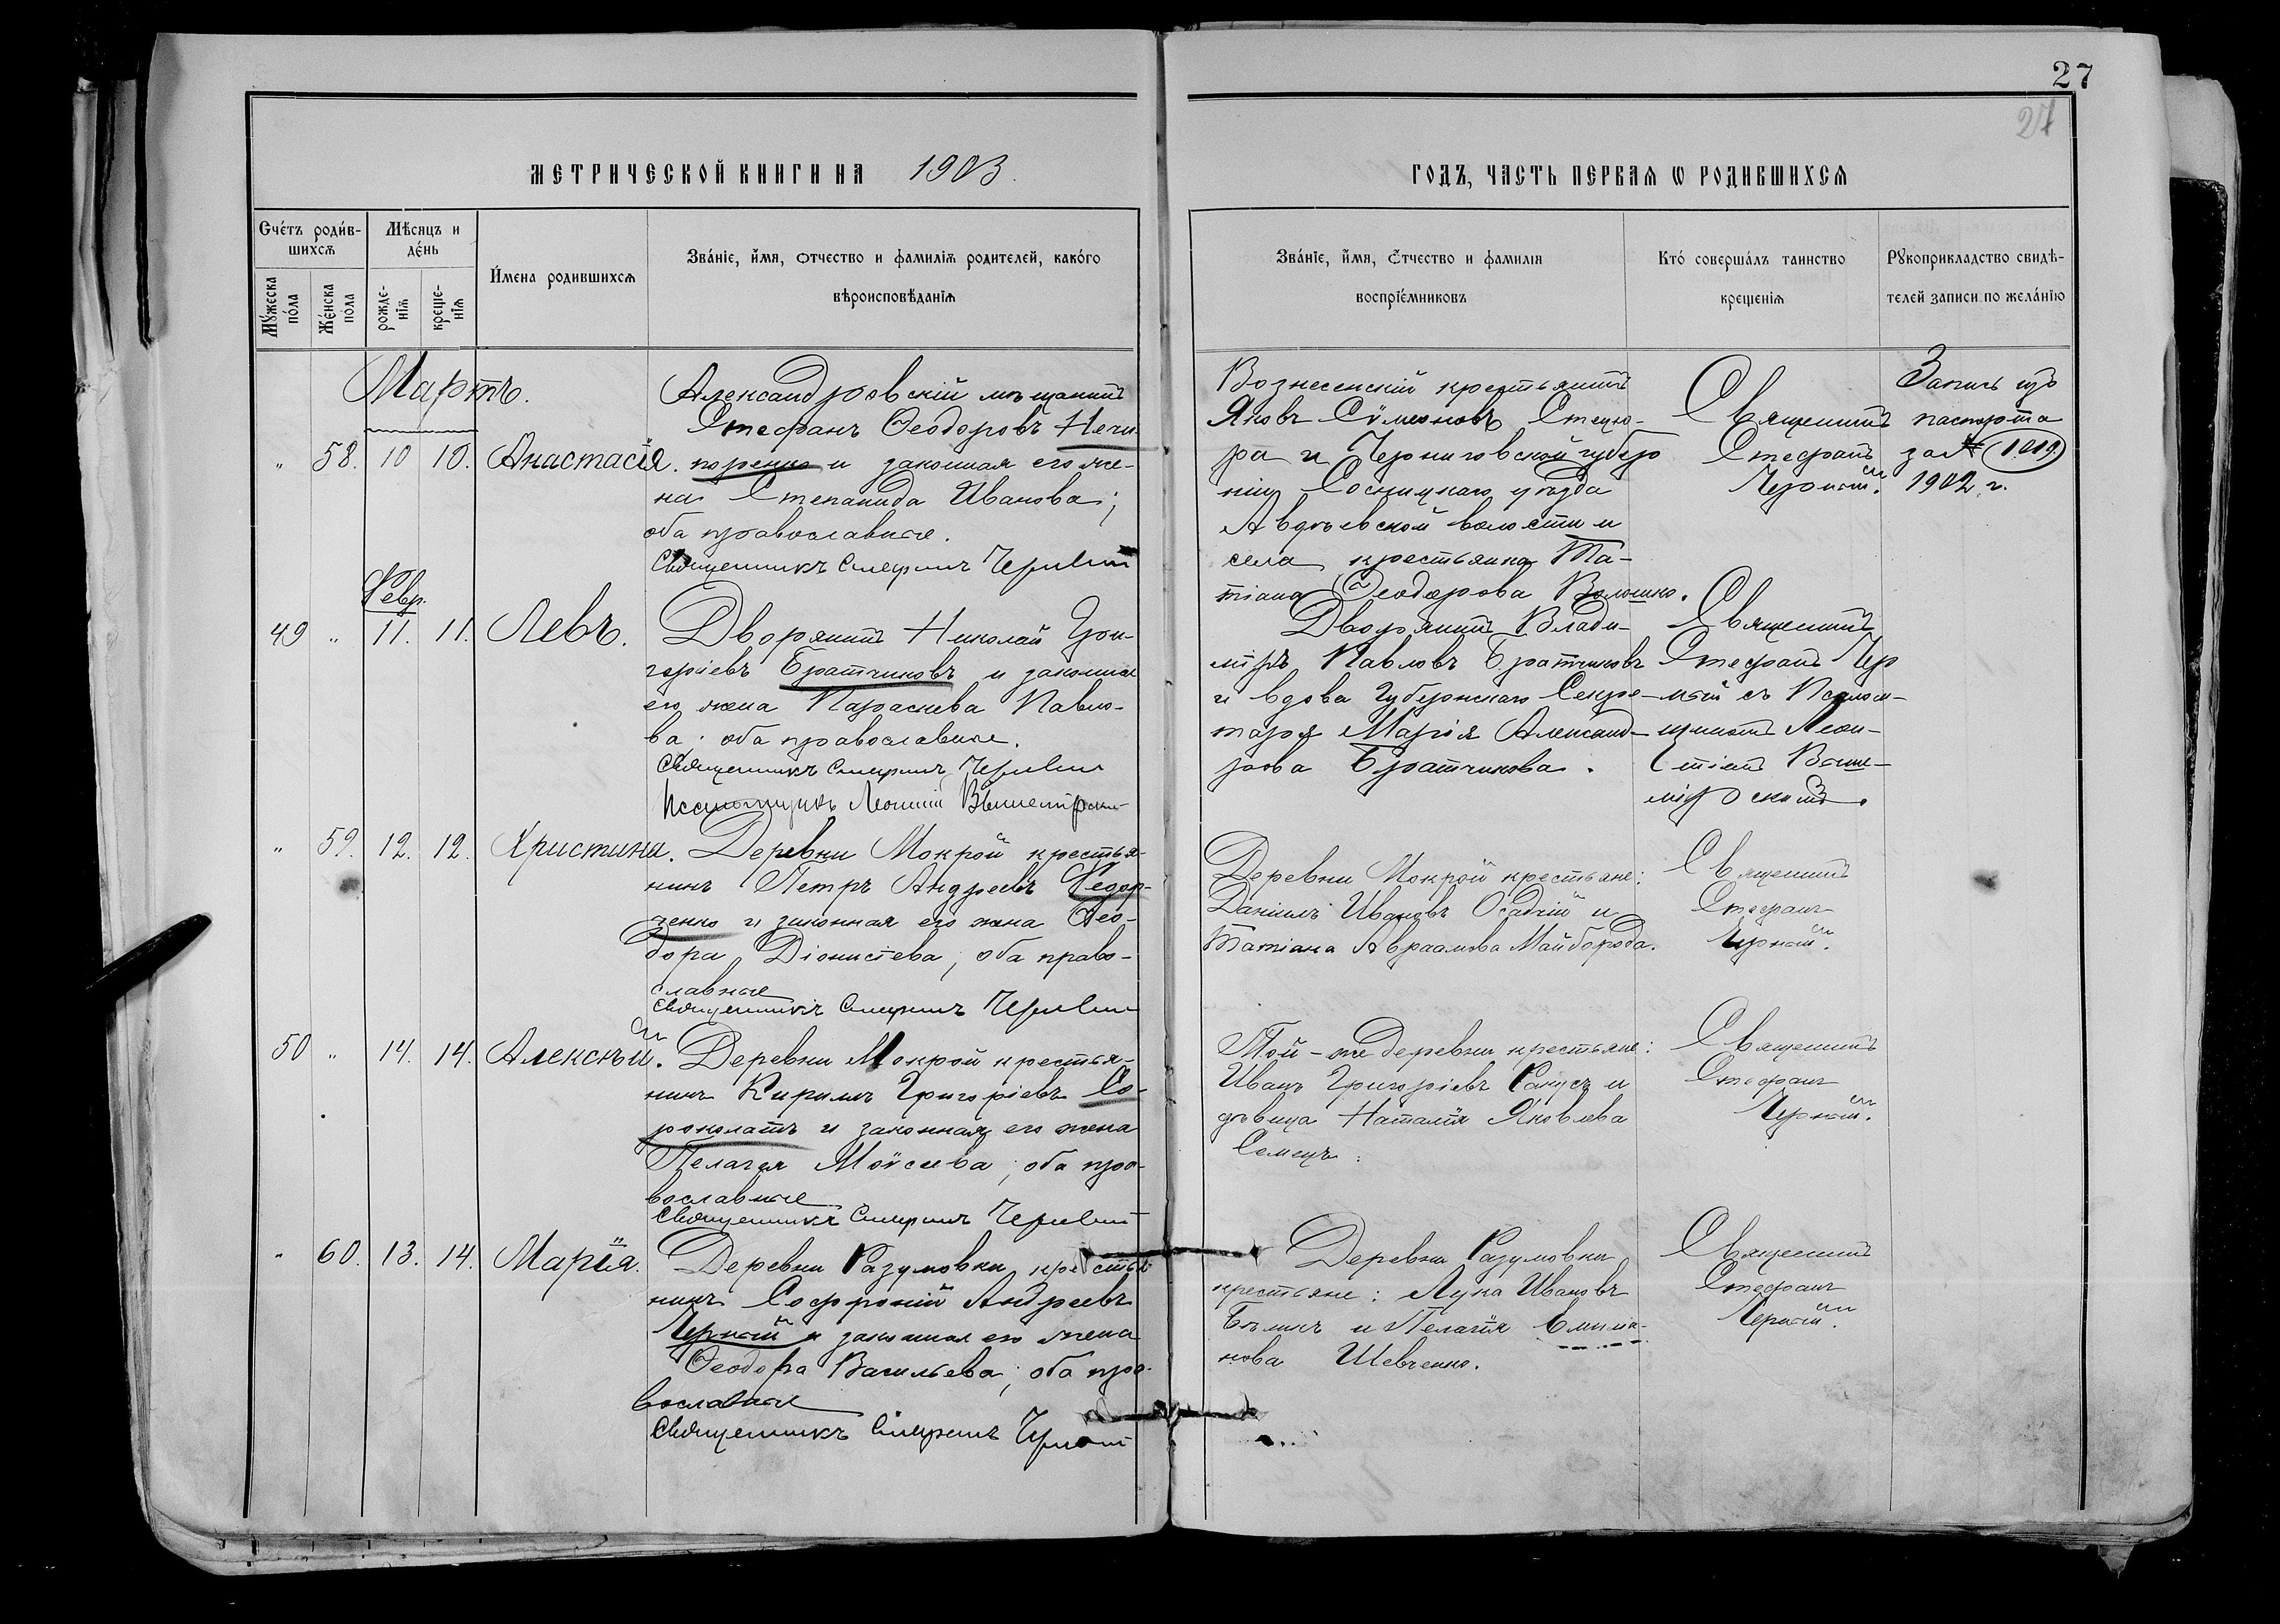 27
27
МЕТРИЧЕСКОЙ КНИГИ НА 1903.
ГОДЪ, ЧАСТЬ ПЕРВАЯ Ѡ РОДИВШИХСЯ
Счéтъ роди́вшихся
Мѣсяцъ и дéнь
Мꙋ́жеска по́ла
Же́нска пола
рожде-нїя
креще-нїя
И́мена родившихся
Зва́нїе, и́мя, отчество и фамилїя родителей, како́го
вѣроисповѣ́данїя
Зва́нїе, и́мя, ѻ́тчество и фамилїя
воспрїе́мниковъ
Кто́ соверша́лъ таинство
крещенїя
Рꙋкоприкладство свидѣ-
телей записи по жела́нїю
Мартъ.
" 58. 10 10. Анастасія.
Александровскій мѣщанинъ
Стефанъ Ѳеодоровъ Нечи-
поренко и законная его же-
на Степанида Иванова;
оба православные.
Священникъ Стефанъ Черный
Вознесенскій крестьянинъ
Яковъ Сѵмеоновъ Стецю-
ра и Черниговской губер
ніи Сосницкаго уѣзда
Авдѣевской волости и
села крестьянка Та-
тіана Ѳеодорова Волошко.
Священникъ
Стефанъ
Черный.
Запись изъ
паспорта
за № 1019.
1902 г.
Февр.
49 " 11. 11. Левъ.
Дворянинъ Николай Гри-
горіевъ Братчиковъ и законная
его жена Параскева Павло-
ва; оба православные.
Священникъ Стефанъ Черный
Псаломщикъ Леонтій Вышемірскій
Дворянинъ Влади-
міръ Павловъ Братчиковъ
и вдова Губернскаго Секре-
таря Марія Александ-
рова Братчикова.
Священникъ
Стефанъ Чер
ный съ Псалом-
щикомъ Леон-
тіемъ Выше-
мірскимъ.
" 59. 12. 12. Христина.
Деревни Мокрой крестья-
нинъ Петръ Андреевъ Федор-
ченко и законная его жена Ѳео-
дора Діонисіева; оба право-
славные
Священникъ Стефанъ Черный
Деревни Мокрой крестьяне:
Даніилъ Ивановъ Осадчій и
Татіана Авраамова Майборода.
Священникъ
Стефанъ
Черный.
50 " 14. 14. Алексѣй.
Деревни Мокрой крестья-
нинъ Кириллъ Григоріевъ Со-
роколатъ и законная его жена
Пелагея Моисеева; оба пра-
вославные
Священникъ Стефанъ Черный
Той-же деревни крестьяне:
Иванъ Григоріевъ и
дѣвица Наталія Яковлева
Семецъ.
Священникъ
Стефанъ
Черный.
" 60. 13. 14. Марія.
Деревни Разумовки крестья-
нинъ Софроній Андреевъ
Черный и законная его жена
Ѳеодора Васильева; оба пра-
вославные
Священникъ Стефанъ Черный
Деревни Разумовки
крестьяне: Лука Ивановъ
Бѣликъ и Пелагія Емилiа-
нова Шевченко.
Священникъ
Стефанъ
Черный.